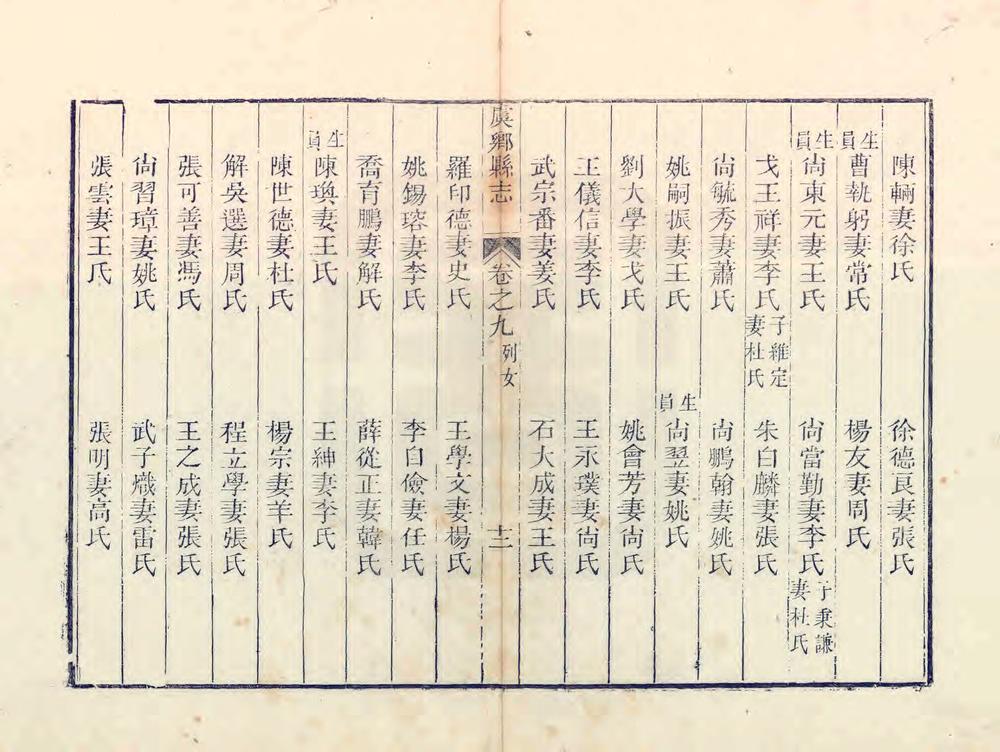 陳輛妻徐氏　徐德良妻張氏
生員曹執躬妻常氏　楊友妻周氏
生員尙東元妻王氏　尙當勤妻李氏子秉謙妻杜氏
戈王祥妻李氏子維定妻杜氏　朱白麟妻張氏
尙毓秀妻蕭氏　尙鵬翰妻姚氏
姚嗣振妻王氏　生員尙翌妻姚氏
劉大學妻戈氏　姚會芳妻尙氏
王儀信妻李氏　王永璞妻尙氏
武宗番妻姜氏　石大成妻王氏
虞鄉縣志　卷之九　列女　十二
羅印德妻史氏　王學文妻楊氏
姚錫瑢妻李氏　李自儉妻任氏
喬育鵬妻解氏　薛從正妻韓氏
生員陳瑍妻王氏　王紳妻李氏
陳世德妻杜氏　楊宗妻羊氏
解吳選妻周氏　程立學妻張氏
張可善妻馮氏　王之成妻張氏
尙習璋妻姚氏　武子熾妻雷氏
張雲妻王氏　張明妻高氏